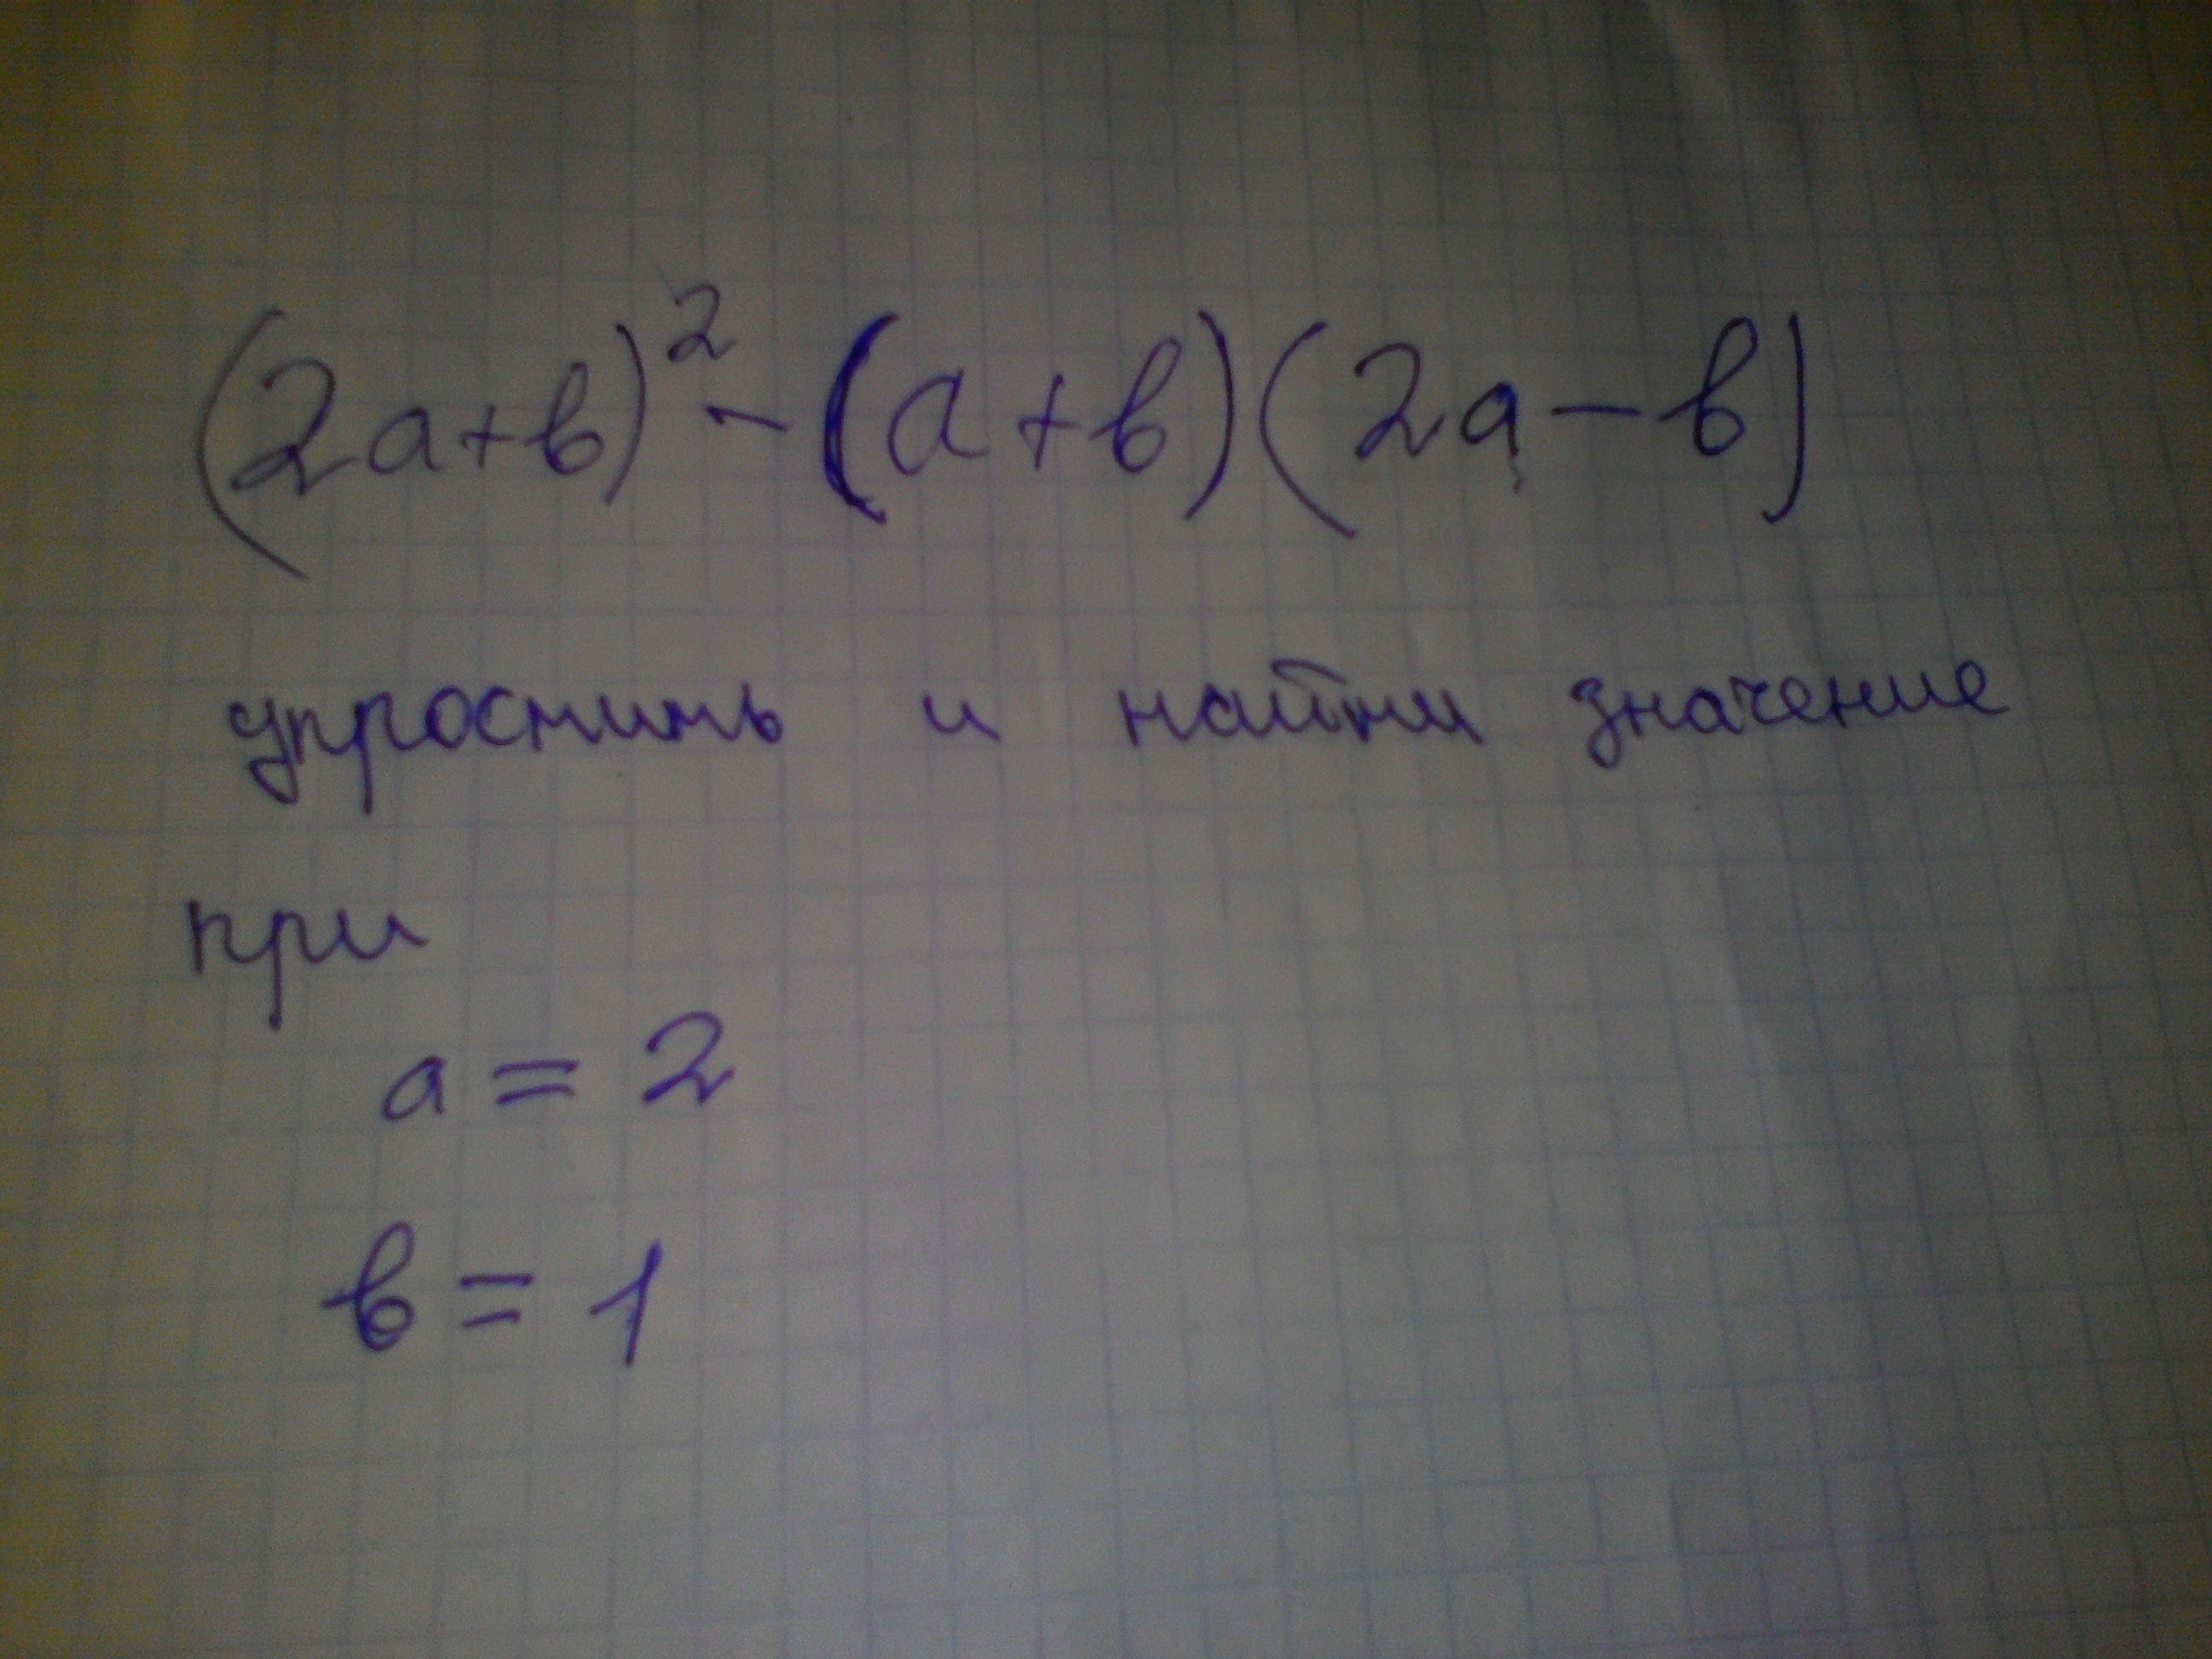 (2а+в)² - (а+в)(2а-в)
упростить и найти значение
при
а = 2
в = 1